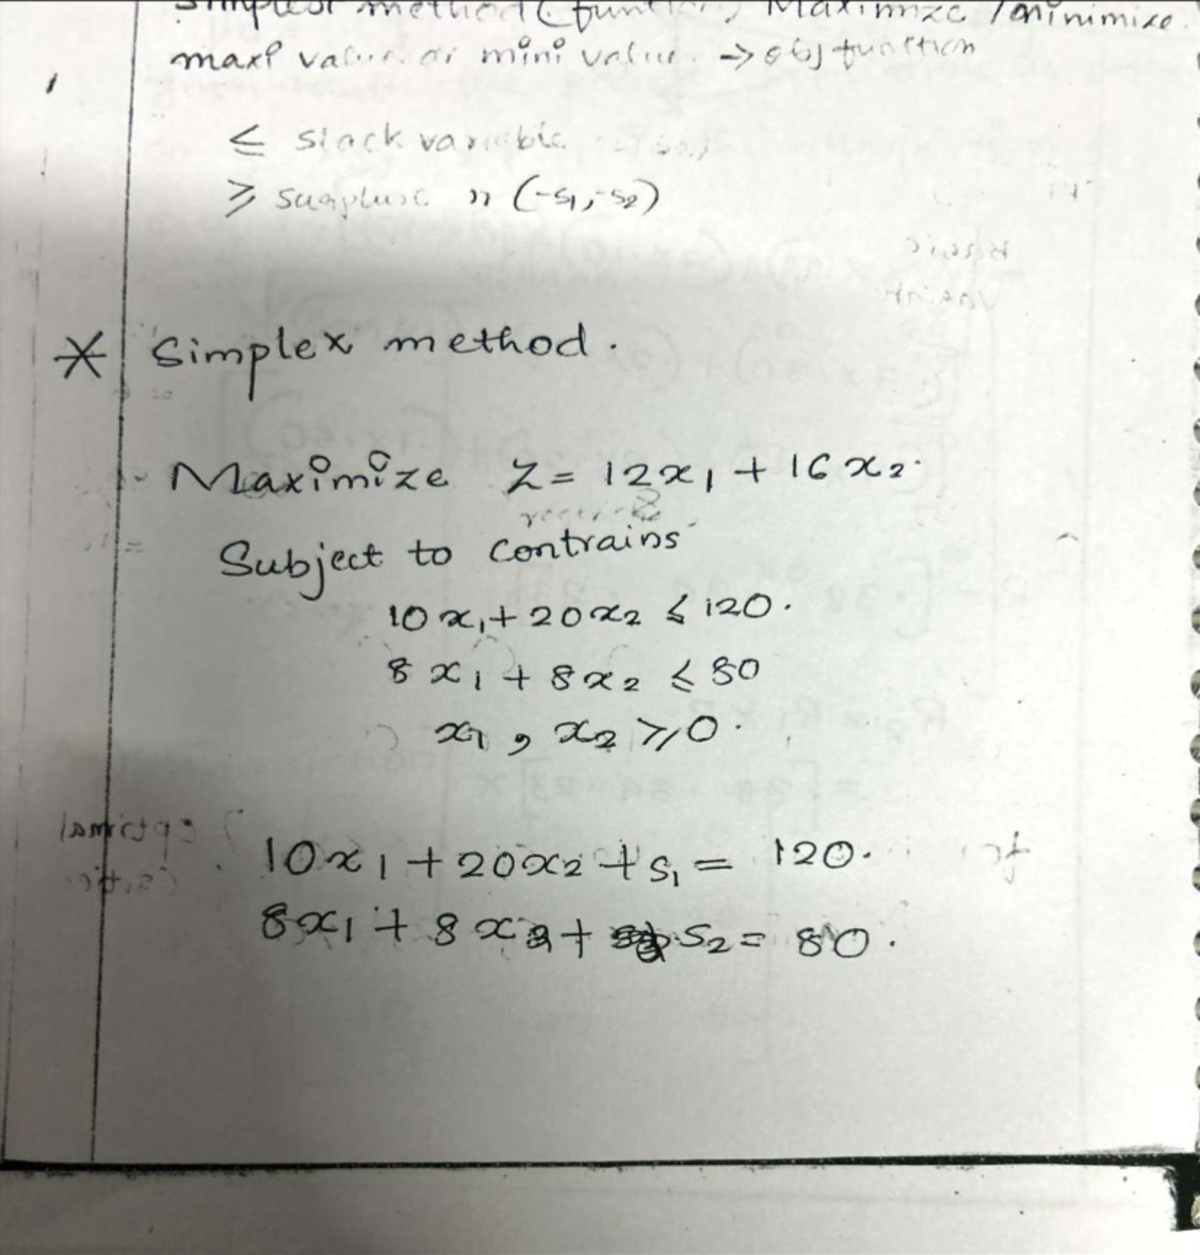 Simplex method (function) Maximize / minimize.
maxi value or mini value. → obj function
≤ slack variable
≥ suapluse " (-s₁, -s₂)
* Simplex method.
Maximize Z = 12x₁ + 16x₂.
Subject to contrains
10x₁ + 20x₂ ≤ 120.
8x₁ + 8x₂ ≤ 80
x₁, x₂ ≥ 0.
10x₁ + 20x₂ + s₁ = 120.
8x₁ + 8x₂ + s₂ = 80.